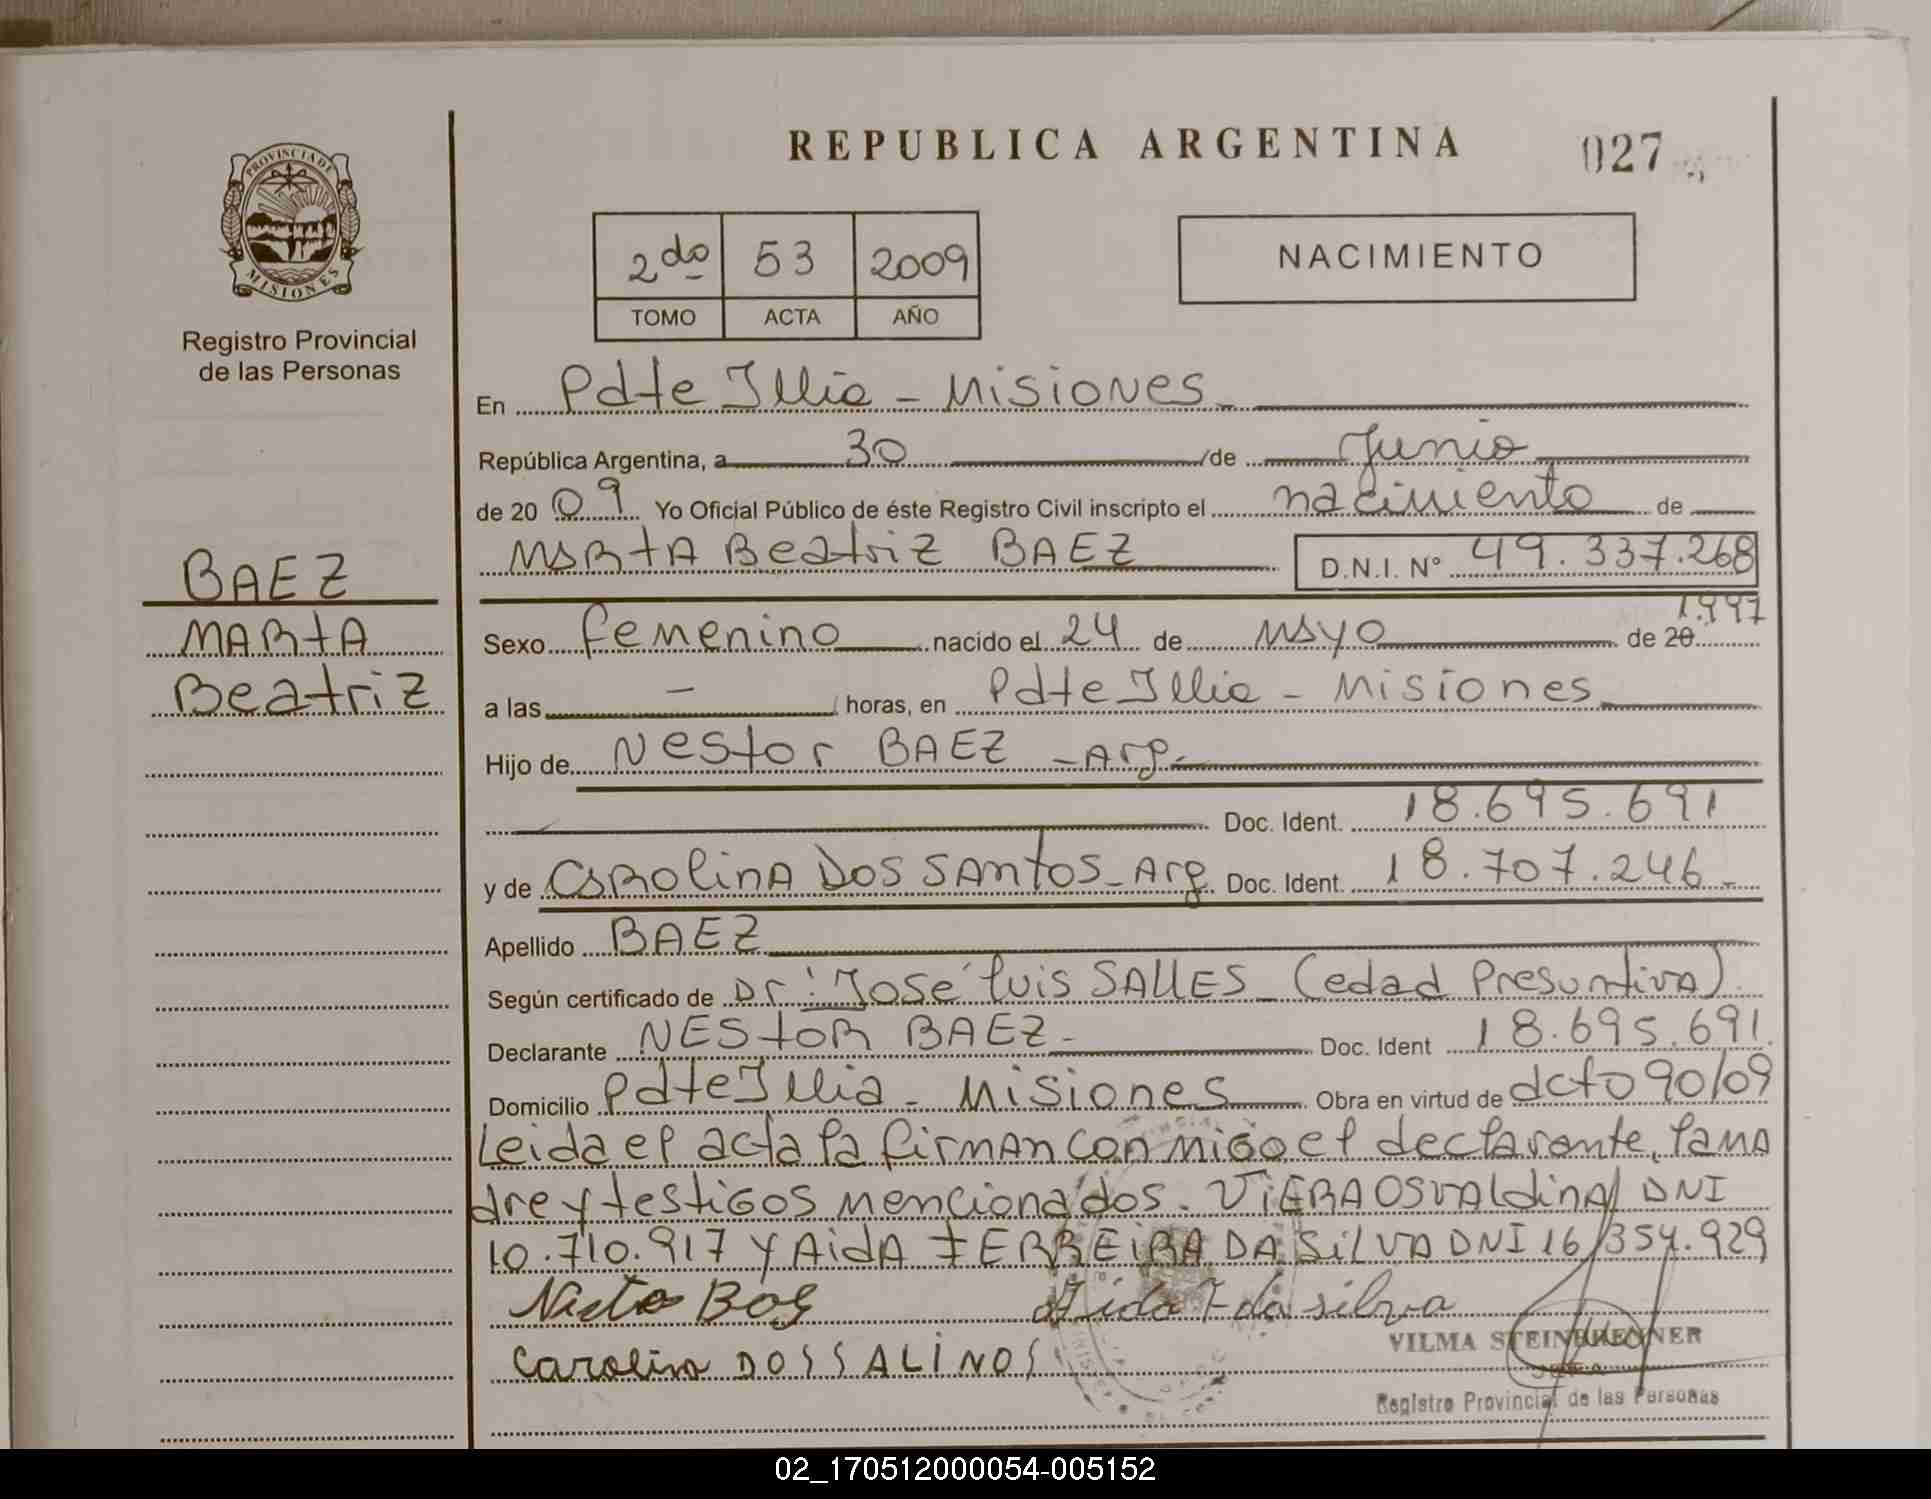 REPUBLICA ARGENTINA
027
PROVINCIA DE
MISIONES
Registro Provincial
de las Personas
2do 53 2009
TOMO ACTA AÑO
NACIMIENTO
En Pdte Illia - Misiones
República Argentina, a 30 de Junio
de 20 09 Yo Oficial Público de éste Registro Civil inscripto el nacimiento de
MARTA Beatriz BAEZ D.N.I. Nº 49.337.268
BAEZ
MARTA
Beatriz
Sexo femenino nacido el 24 de MAYO de 20 1.997
a las - horas, en Pdte Illia - Misiones
Hijo de Nestor BAEZ - Arg-
Doc. Ident. 18.695.691
y de CAROlinA DOS SANTOS - Arg. Doc. Ident. 18.707.246-
Apellido BAEZ
Según certificado de Dr: José luis SALLES - (edad Presuntiva)
Declarante NEStOR BAEZ - Doc. Ident 18.695.691
Domicilio Pdte Illia - Misiones Obra en virtud de dcto 90/09
Leida el acta la firman con migo el declarante, la ma
dre y testigos mencionados. ViERA OSVAldinA DNI
10.710.917 y AidA FERREiRA DA SilVA DNI 16.354.929
Aida F da silva
VILMA STEINBRENNER
JEFA
Registro Provincial de las Personas
Carolin DOSSALINOS
02_170512000054-005152